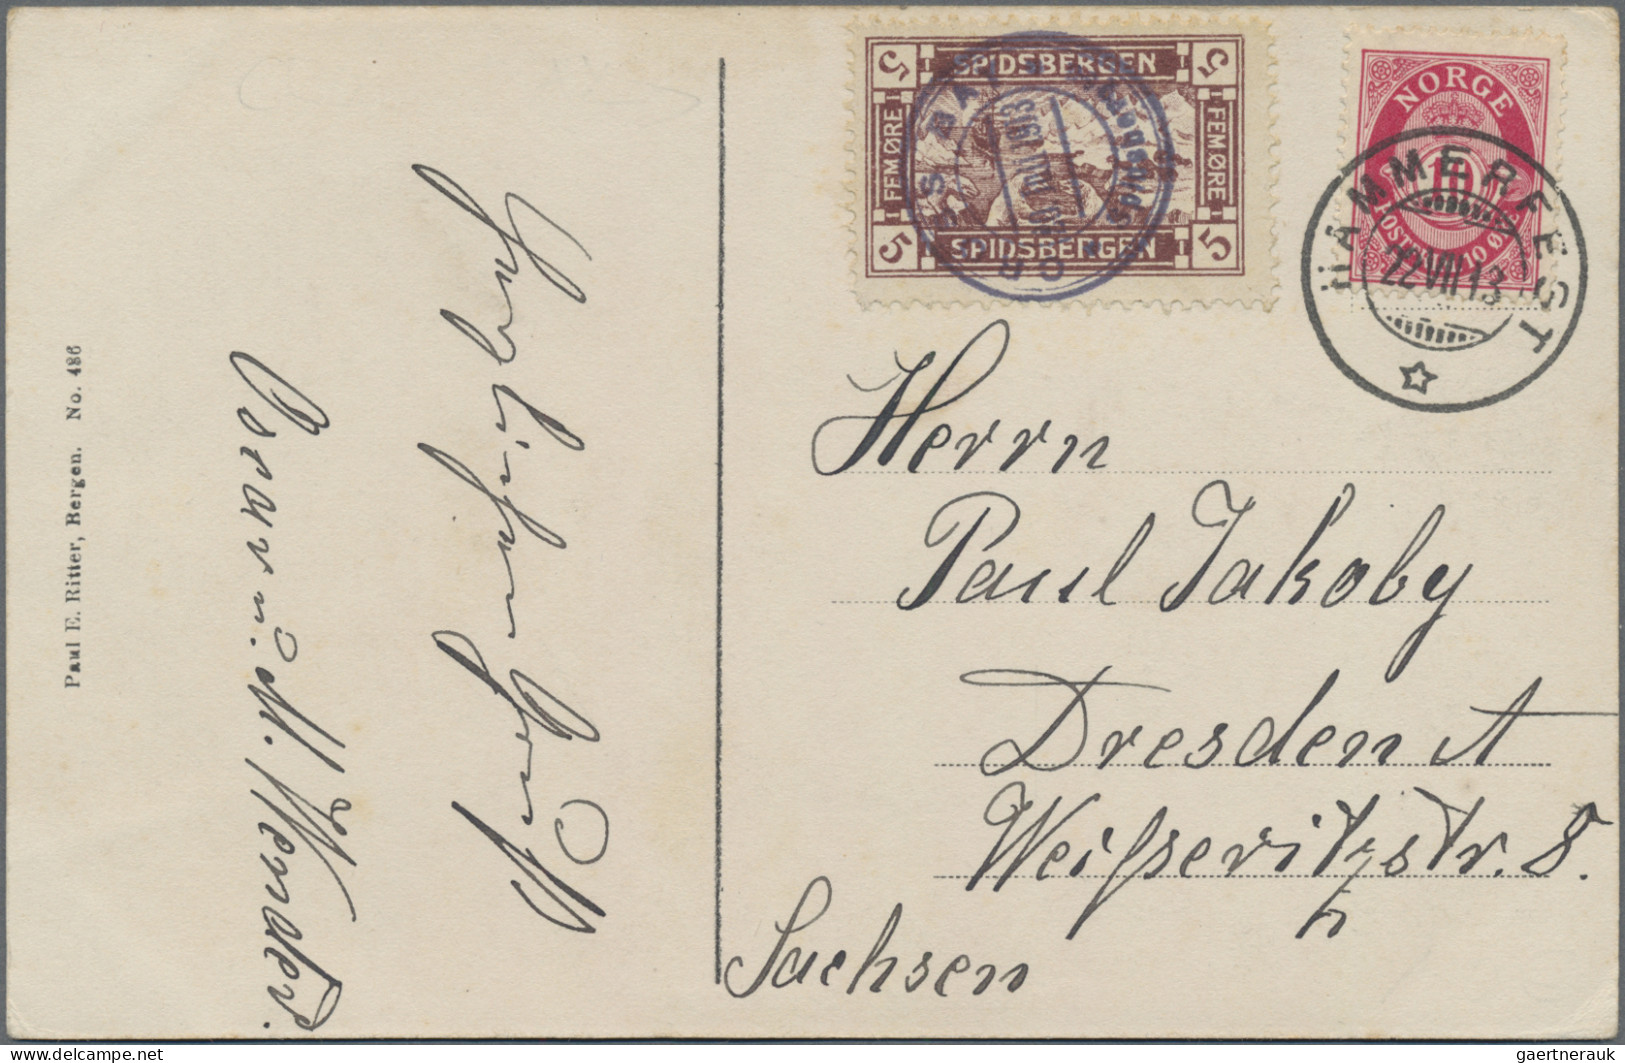 Paul E. Ritter, Bergen. No. 486
5 SPIDSBERGEN 5
FEM ØRE FEM ØRE
5 SPIDSBERGEN 5
CROSS BAY * Spidsbergen
VIII 1913
NORGE
10
POSTFRIM 10 Ø
HAMMERFEST
22 VII 13
Herrn
Paul Jakoby
Dresden A
Weißeritzstr. 8.
Sachsen
Oscar u. M. Wender.
gaertnerauk